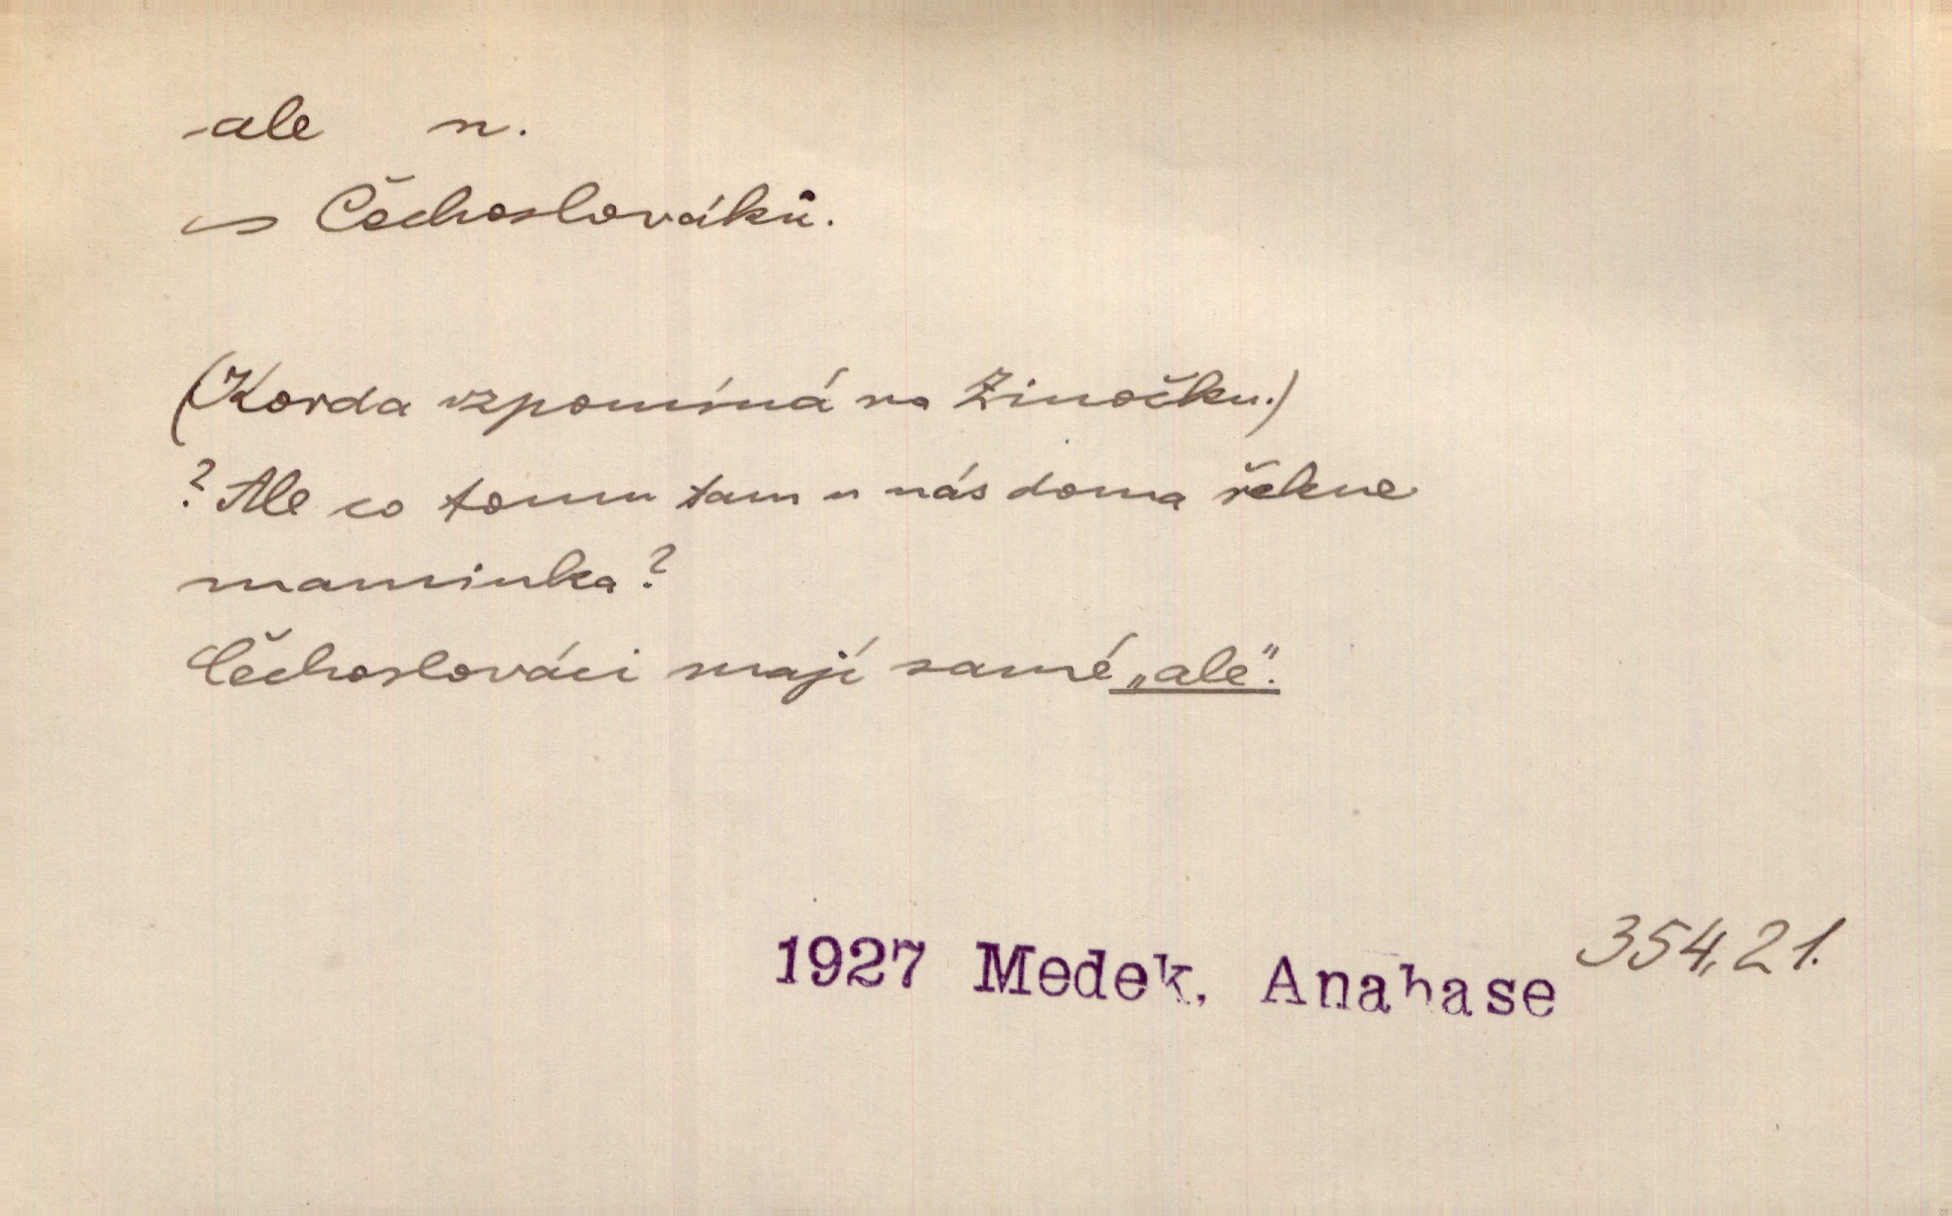 -ale n.
~ Čechoslováků.
(Korda vzpomíná na Zinočku.)
? Ale co tomu tam u nás doma řekne
maminka?
Čechoslováci mají samé „ale".
1927 Medek, Anabase 354,21.